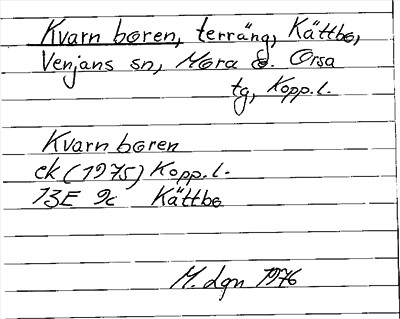 Kvarnboren, terräng, Kättbo,
Venjans sn, Mora o. Orsa
tg, Kopp.l.
Kvarnboren
ek (1975) Kopp.l.
13E 9c Kättbo
M. dgn 1976